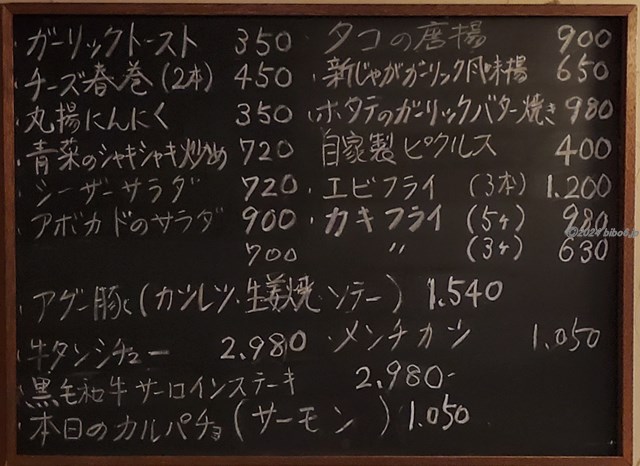 ・ガーリックトースト 350
・チーズ春巻(2本) 450
・丸揚にんにく 350
・青菜のシャキシャキ炒め 720
・シーザーサラダ 720
・アボカドのサラダ 900
700
・タコの唐揚 900
・新じゃがガーリック風味揚 650
・ホタテのガーリックバター焼き 980
自家製ピクルス 400
・エビフライ (3本) 1.200
・カキフライ (5ヶ) 980
〃 (3ヶ) 630
・アグー豚(カツレツ・生姜焼・ソテー) 1.540
・牛タンシチュー 2.980
・メンチカツ 1.050
・黒毛和牛サーロインステーキ 2.980-
・本日のカルパチョ(サーモン) 1.050